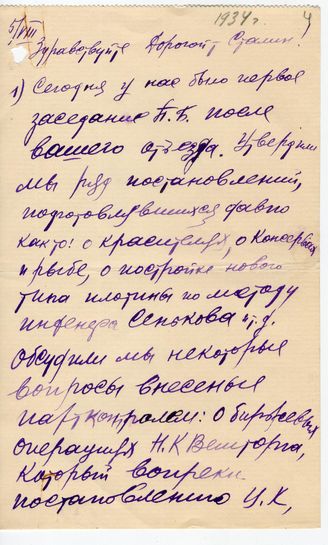 5/VIII
1934 г.
4
Здравствуйте Дорогой т. Сталин.
1) Сегодня у нас было первое
заседание П.Б. после
вашего отъезда. Утвердили
мы ряд постановлений,
подготовлявшихся давно
как то: о красителях, о консервах
и рыбе, о постройке нового
типа плотины по методу
инженера Сенькова и т.д.
Обсудили мы некоторые
вопросы внесеные
партконтролем: о биржевых
операциях Н.К Внешторга,
который вопреки
постановлению Ц.К,